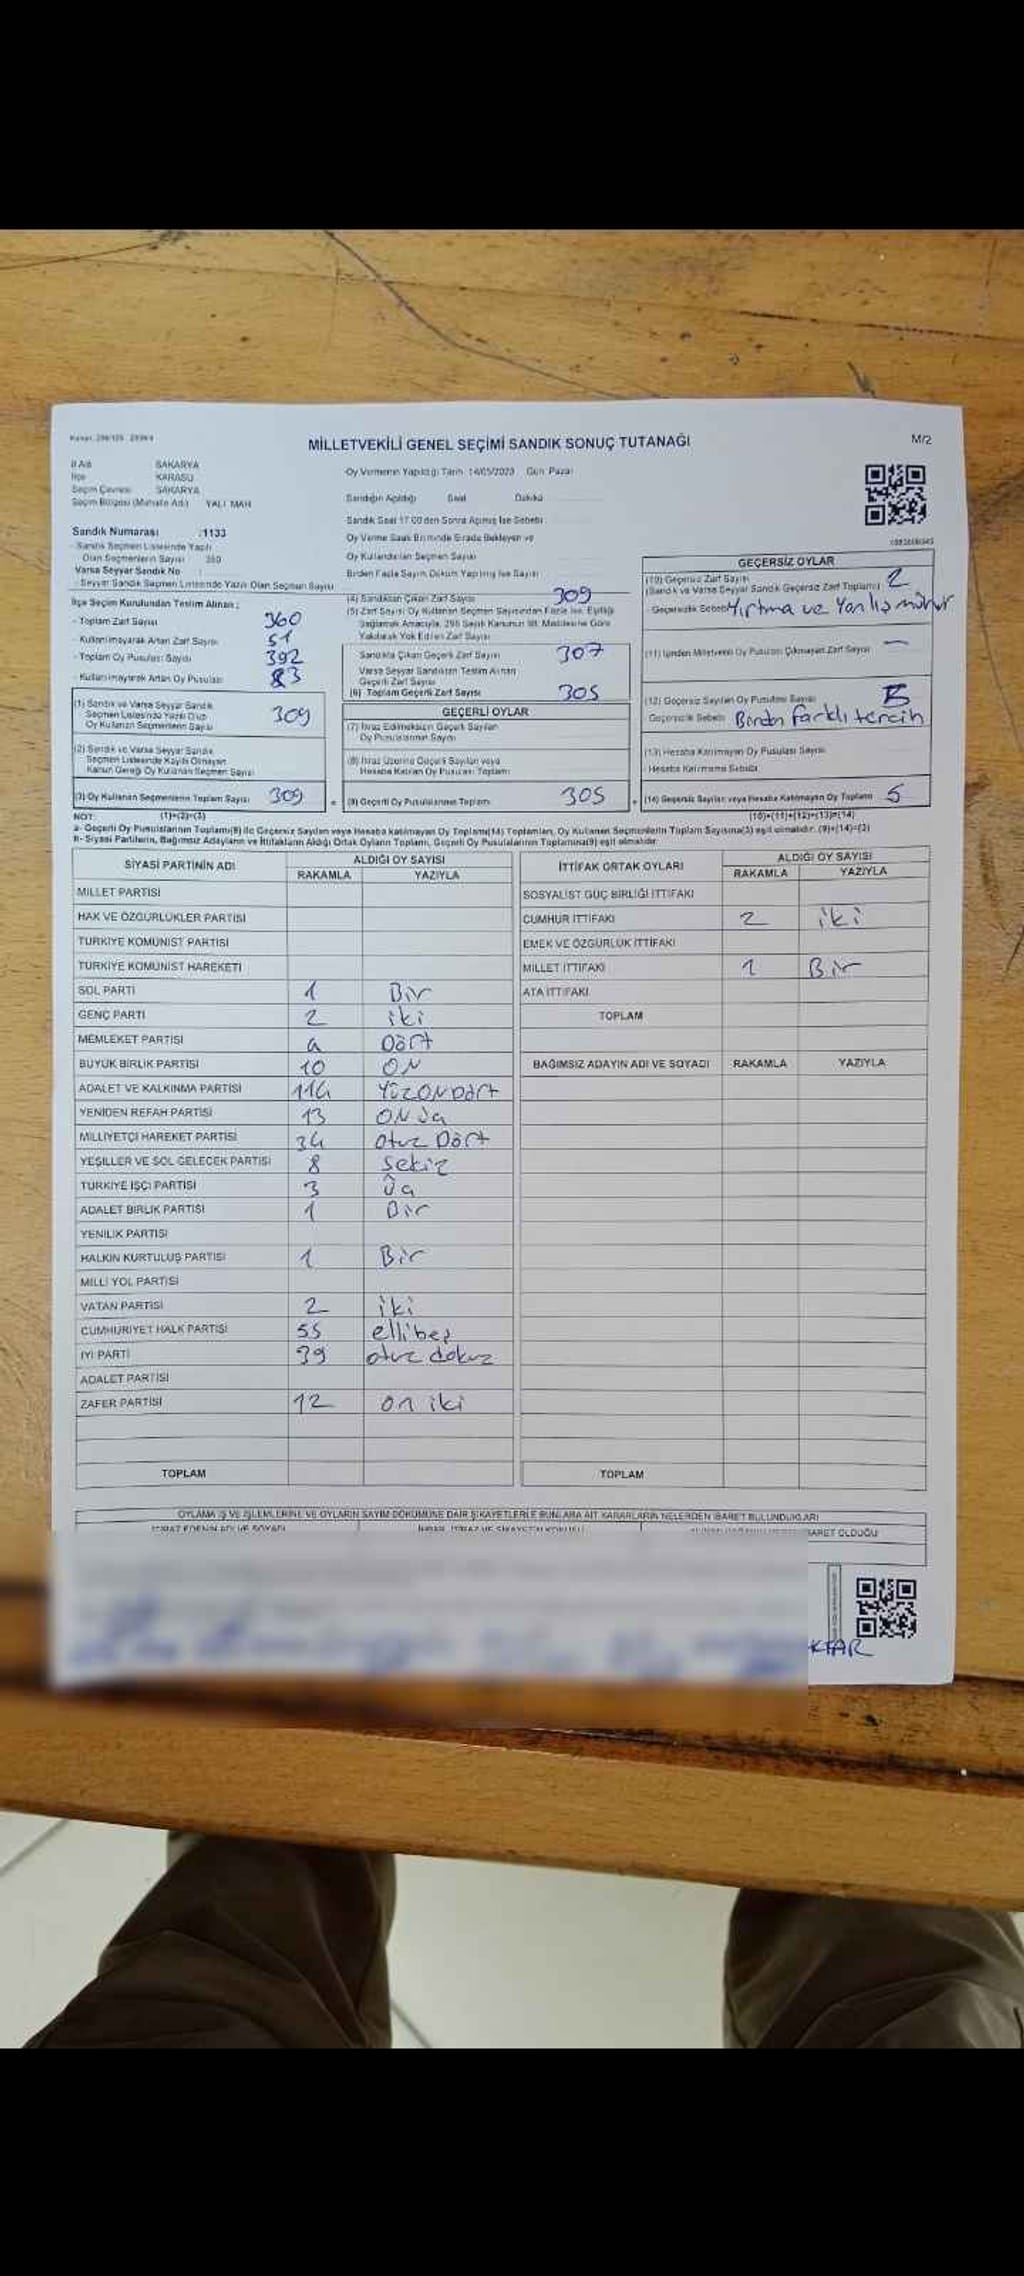 MİLLETVEKİLİ GENEL SEÇİMİ SANDIK SONUÇ TUTANAĞI
M/2
İl Adı SAKARYA
İlçe KARASU
Seçim Çevresi SAKARYA
Seçim Bölgesi (Mahalle Adı) YALI MAH
Oy Vermenin Yapıldığı Tarih 14/05/2023 Gün Pazar
Sandığın Açıldığı Saat Dakika
Sandık Saat 17 00 den Sonra Açılmış İse Sebebi
Oy Verme Saati Bitiminde Sırada Bekleyen ve
Oy Kullandırılan Seçmen Sayısı
Birden Fazla Sayım Döküm Yapılmış İse Sayısı
Sandık Numarası :1133
- Sandık Seçmen Listesinde Yazılı
Olan Seçmenlerin Sayısı
Varsa Seyyar Sandık No
- Seyyar Sandık Seçmen Listesinde Yazılı Olan Seçmen Sayısı
İlçe Seçim Kurulundan Teslim Alınan :
- Toplam Zarf Sayısı 360
- Kullanılmayarak Artan Zarf Sayısı 51
- Toplam Oy Pusulası Sayısı 392
- Kullanılmayarak Artan Oy Pusulası 83
(1) Sandık ve Varsa Seyyar Sandık
Seçmen Listesinde Yazılı Olup
Oy Kullanan Seçmenlerin Sayısı 309
(2) Sandık ve Varsa Seyyar Sandık
Seçmen Listesinde Kayıtlı Olmayan
Kanun Gereği Oy Kullanan Seçmen Sayısı
(3) Oy Kullanan Seçmenlerin Toplam Sayısı 309
(4) Sandıktan Çıkan Zarf Sayısı 309
(5) Zarf Sayısı Oy Kullanan Seçmen Sayısından Fazla İse, Eşitliği
Sağlamak Amacıyla, 298 Sayılı Kanunun 98. Maddesine Göre
Yakılarak Yok Edilen Zarf Sayısı
Sandıkta Çıkan Geçerli Zarf Sayısı 307
Varsa Seyyar Sandıktan Teslim Alınan
Geçerli Zarf Sayısı
(6) Toplam Geçerli Zarf Sayısı 305
GEÇERLİ OYLAR
(7) İtiraz Edilmeksizin Geçerli Sayılan
Oy Pusulalarının Sayısı
(8) İtiraz Üzerine Geçerli Sayılan veya
Hesaba Katılan Oy Pusulası Toplamı
= (9) Geçerli Oy Pusulalarının Toplamı 305
GEÇERSİZ OYLAR
(10) Geçersiz Zarf Sayısı 2
(Sandık ve Varsa Seyyar Sandık Geçersiz Zarf Toplamı)
- Geçersizlik Sebebi Yırtma ve Yanlış mühür
(11) İçinden Milletvekili Oy Pusulası Çıkmayan Zarf Sayısı —
(12) Geçersiz Sayılan Oy Pusulası Sayısı
Geçersizlik Sebebi Birden farklı tercih
(13) Hesaba Katılmayan Oy Pusulası Sayısı
- Hesaba Katılmama Sebebi
+ (14) Geçersiz Sayılan veya Hesaba Katılmayan Oy Toplamı 5
NOT: (1)+(2)=(3)
(10)+(11)+(12)+(13)=(14)
a- Geçerli Oy Pusulalarının Toplamı(9) ile Geçersiz Sayılan veya Hesaba katılmayan Oy Toplamı(14) Toplamları, Oy Kullanan Seçmenlerin Toplam Sayısına(3) eşit olmalıdır. (9)+(14)=(3)
b- Siyasi Partilerin, Bağımsız Adayların ve İttifakların Aldığı Ortak Oyların Toplamı, Geçerli Oy Pusulalarının Toplamına(9) eşit olmalıdır.
SİYASİ PARTİNİN ADI ALDIĞI OY SAYISI
RAKAMLA YAZIYLA
MİLLET PARTİSİ
HAK VE ÖZGÜRLÜKLER PARTİSİ
TÜRKİYE KOMÜNİST PARTİSİ
TÜRKİYE KOMÜNİST HAREKETİ
SOL PARTİ 1 Bir
GENÇ PARTİ 2 iki
MEMLEKET PARTİSİ 4 Dört
BÜYÜK BİRLİK PARTİSİ 10 ON
ADALET VE KALKINMA PARTİSİ 114 YüzONDört
YENİDEN REFAH PARTİSİ 13 ONüç
MİLLİYETÇİ HAREKET PARTİSİ 34 otuz Dört
YEŞİLLER VE SOL GELECEK PARTİSİ 8 sekiz
TÜRKİYE İŞÇİ PARTİSİ 3 Üç
ADALET BİRLİK PARTİSİ 1 Bir
YENİLİK PARTİSİ
HALKIN KURTULUŞ PARTİSİ 1 Bir
MİLLİ YOL PARTİSİ
VATAN PARTİSİ 2 iki
CUMHURİYET HALK PARTİSİ 55 ellibeş
İYİ PARTİ 39 otuz dokuz
ADALET PARTİSİ
ZAFER PARTİSİ 12 on iki
TOPLAM
İTTİFAK ORTAK OYLARI ALDIĞI OY SAYISI
RAKAMLA YAZIYLA
SOSYALİST GÜÇ BİRLİĞİ İTTİFAKI
CUMHUR İTTİFAKI 2 iki
EMEK VE ÖZGÜRLÜK İTTİFAKI
MİLLET İTTİFAKI 1 Bir
ATA İTTİFAKI
TOPLAM
BAĞIMSIZ ADAYIN ADI VE SOYADI RAKAMLA YAZIYLA
TOPLAM
OYLAMA İŞ VE İŞLEMLERİNE VE OYLARIN SAYIM DÖKÜMÜNE DAİR ŞİKAYETLERLE BUNLARA AİT KARARLARIN NELERDEN İBARET BULUNDUKLARI